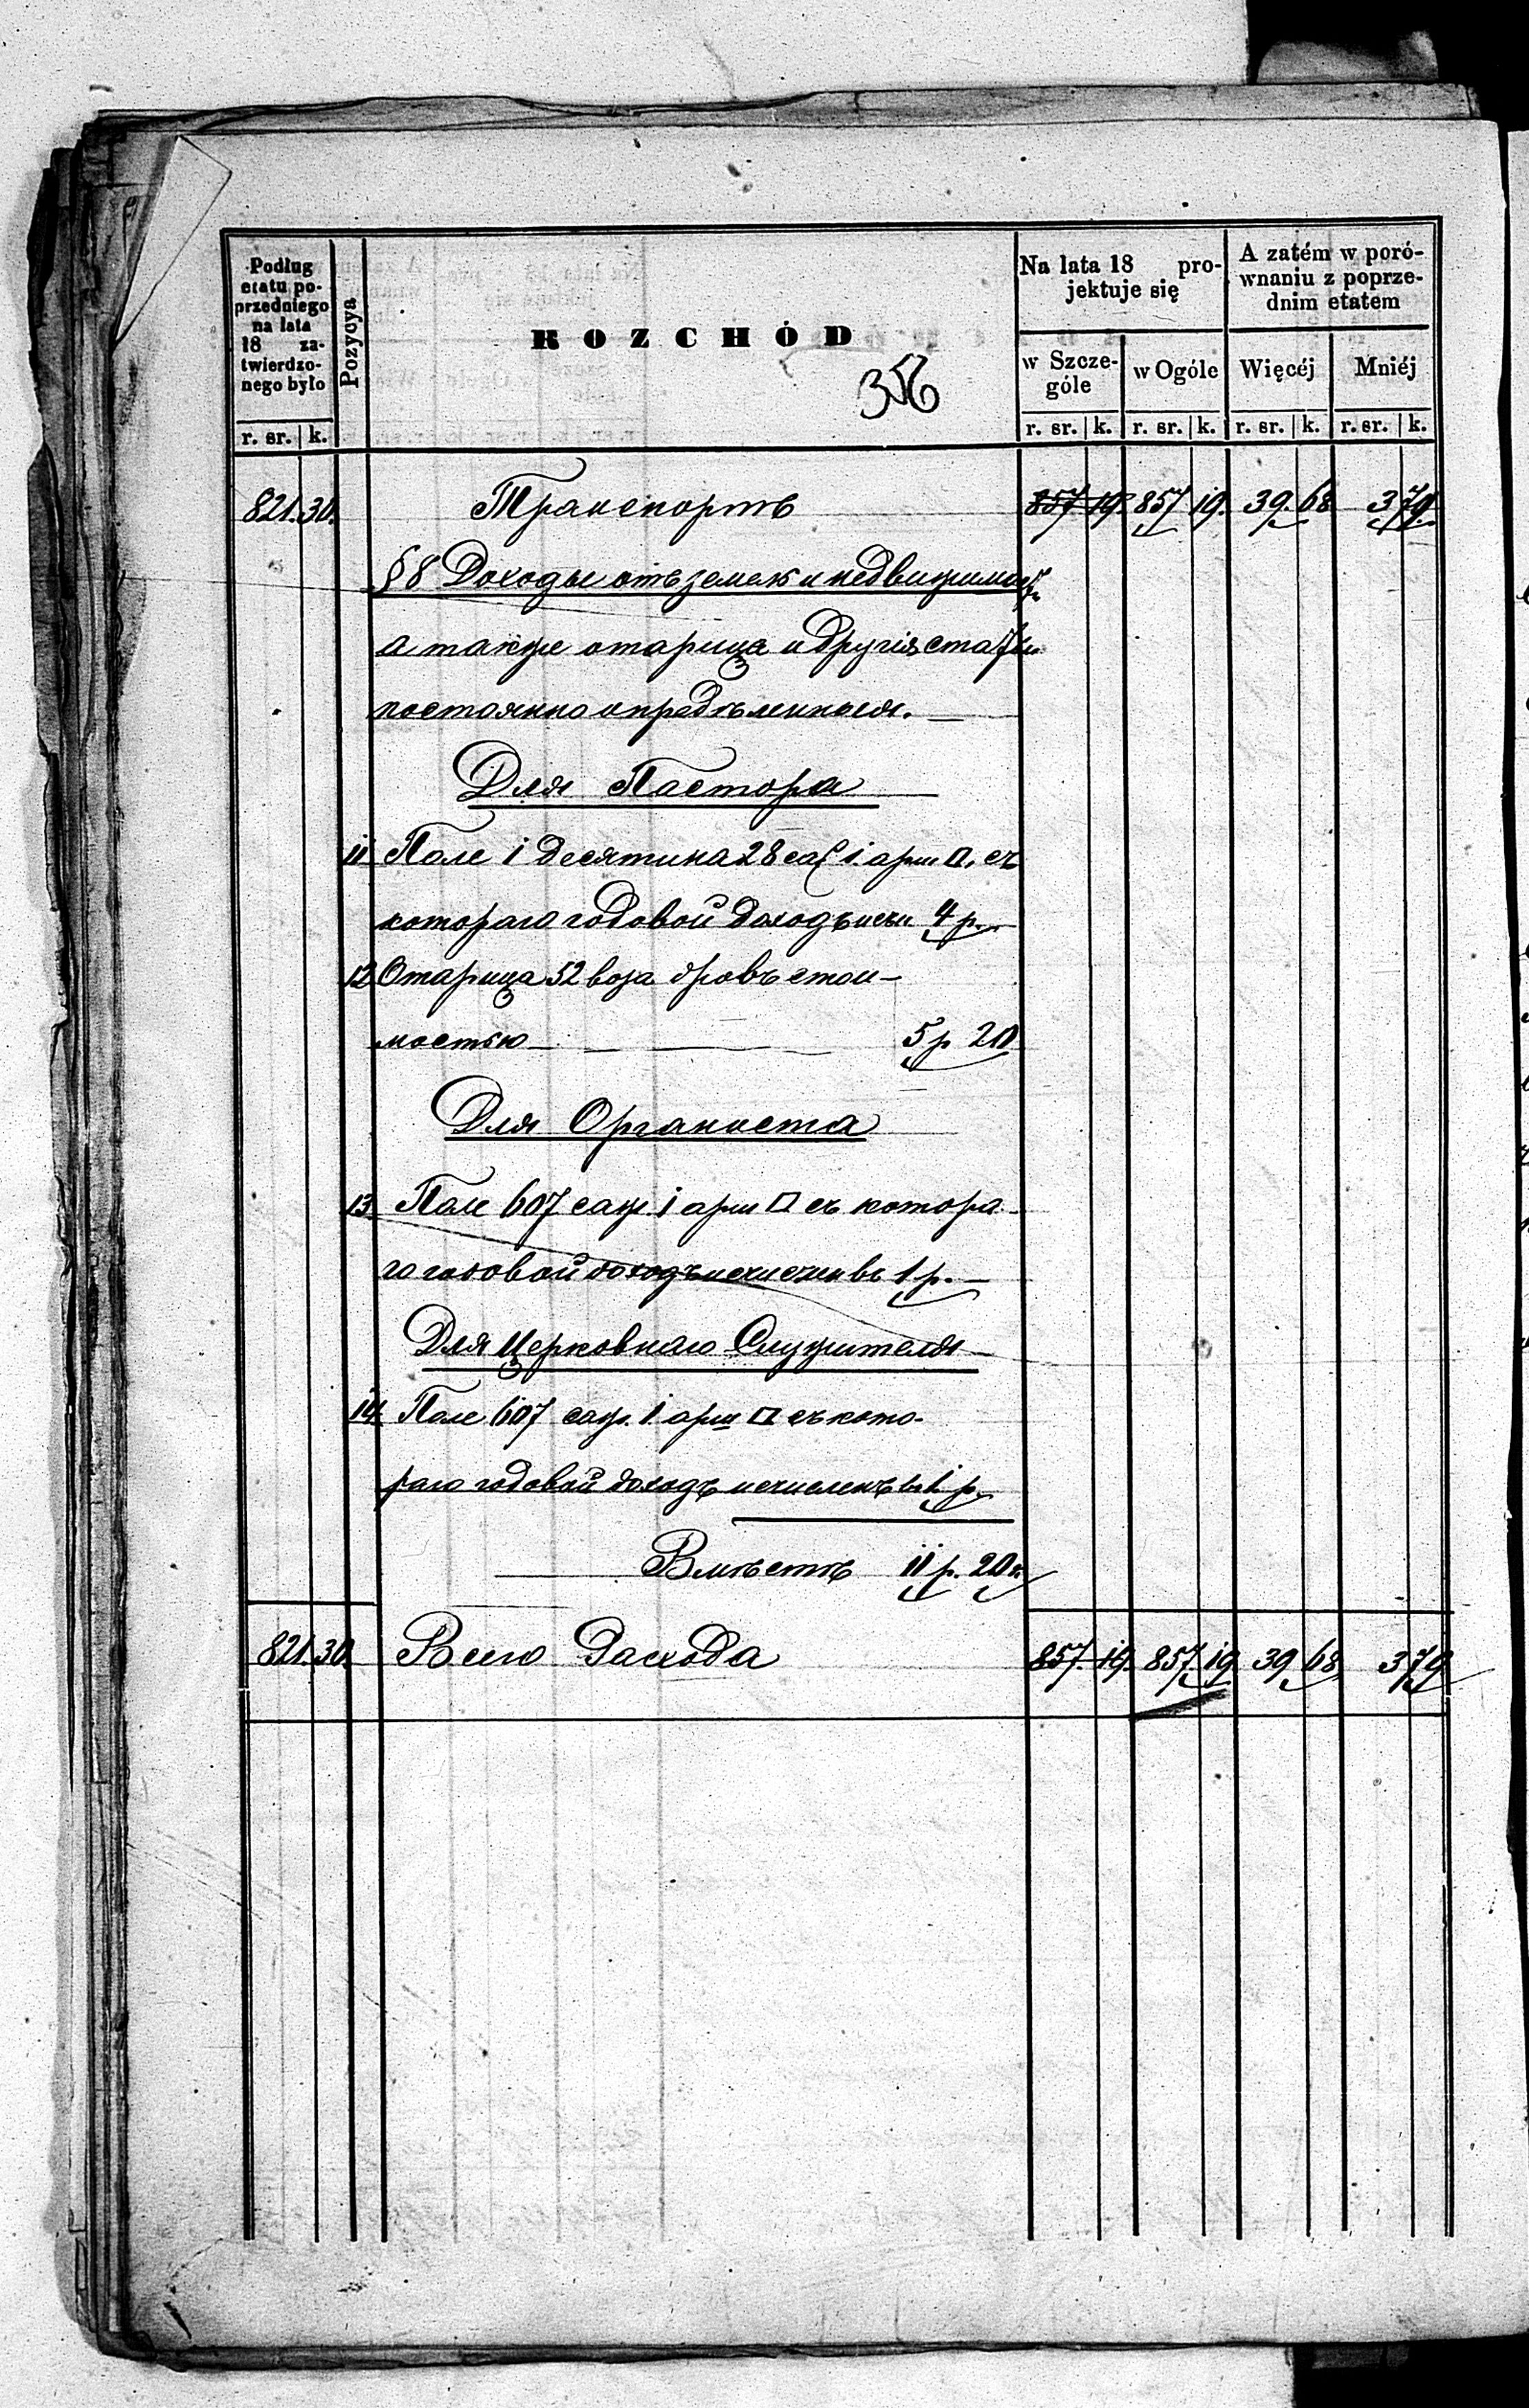 Podług
etatu po-
przedniego
na lata
18 za-
twierdzo-
nego było
Pozycya
ROZCHÓD
356
Na lata 18 pro-
jektuje się
A zatém w poró-
wnaniu z poprze-
dnim etatem
w Szcze-
góle
w Ogóle
Więcéj
Mniéj
r. sr. k. r. sr. k. r. sr. k. r. sr. k. r. sr. k.
821. 30. Транспортъ 857 19. 857 19. 39. 68 3 79
§ 8 Доходы отъ земель и недвижимос.
а также отарица и другія статьи
постоянно опредѣленныя.
Для Пастора
11 Поле 1 десятина 28 саж 1. арш □, съ
котораго годовой доходъ исчи. 4 р.
12 Отарица 52 воза дровъ стои-
мостью 5 р 20
Для Органиста
13 Поле 607 саж 1 арш □ съ котора-
го годовой доходъ исчисленъ 1 р.
Для Церковнаго Служителя
14 Поле 607 саж. 1 арш □ съ кото-
раго годовой доходъ исчисленъ въ 1 р.
Вмѣстѣ 11 р. 20 к.
821. 30. Всего Расхода 857. 19. 857. 19 39 68 3 79